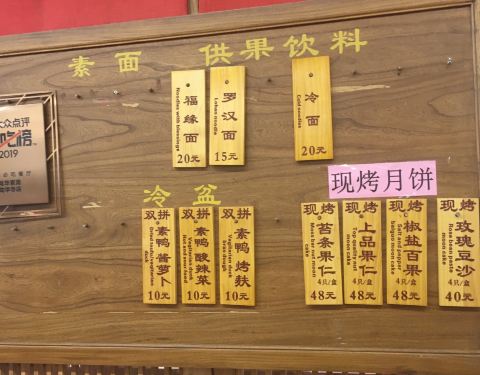 素面 供果饮料
大众点评
必吃榜
2019
福缘面
Noodles with blessings
20元
罗汉面
Lohan noodle
15元
冷面
Cold noodles
20元
冷盆
现烤月饼
双拼
素鸭 酱萝卜
10元
双拼
素鸭 酸辣菜
10元
双拼
素鸭 烤麸
10元
现烤
苔条果仁
4只/盒
48元
现烤
上品果仁
Top quality nut moon cake
4只/盒
48元
现烤
椒盐百果
4只/盒
48元
现烤
玫瑰豆沙
Rose bean paste moon cake
4只/盒
40元